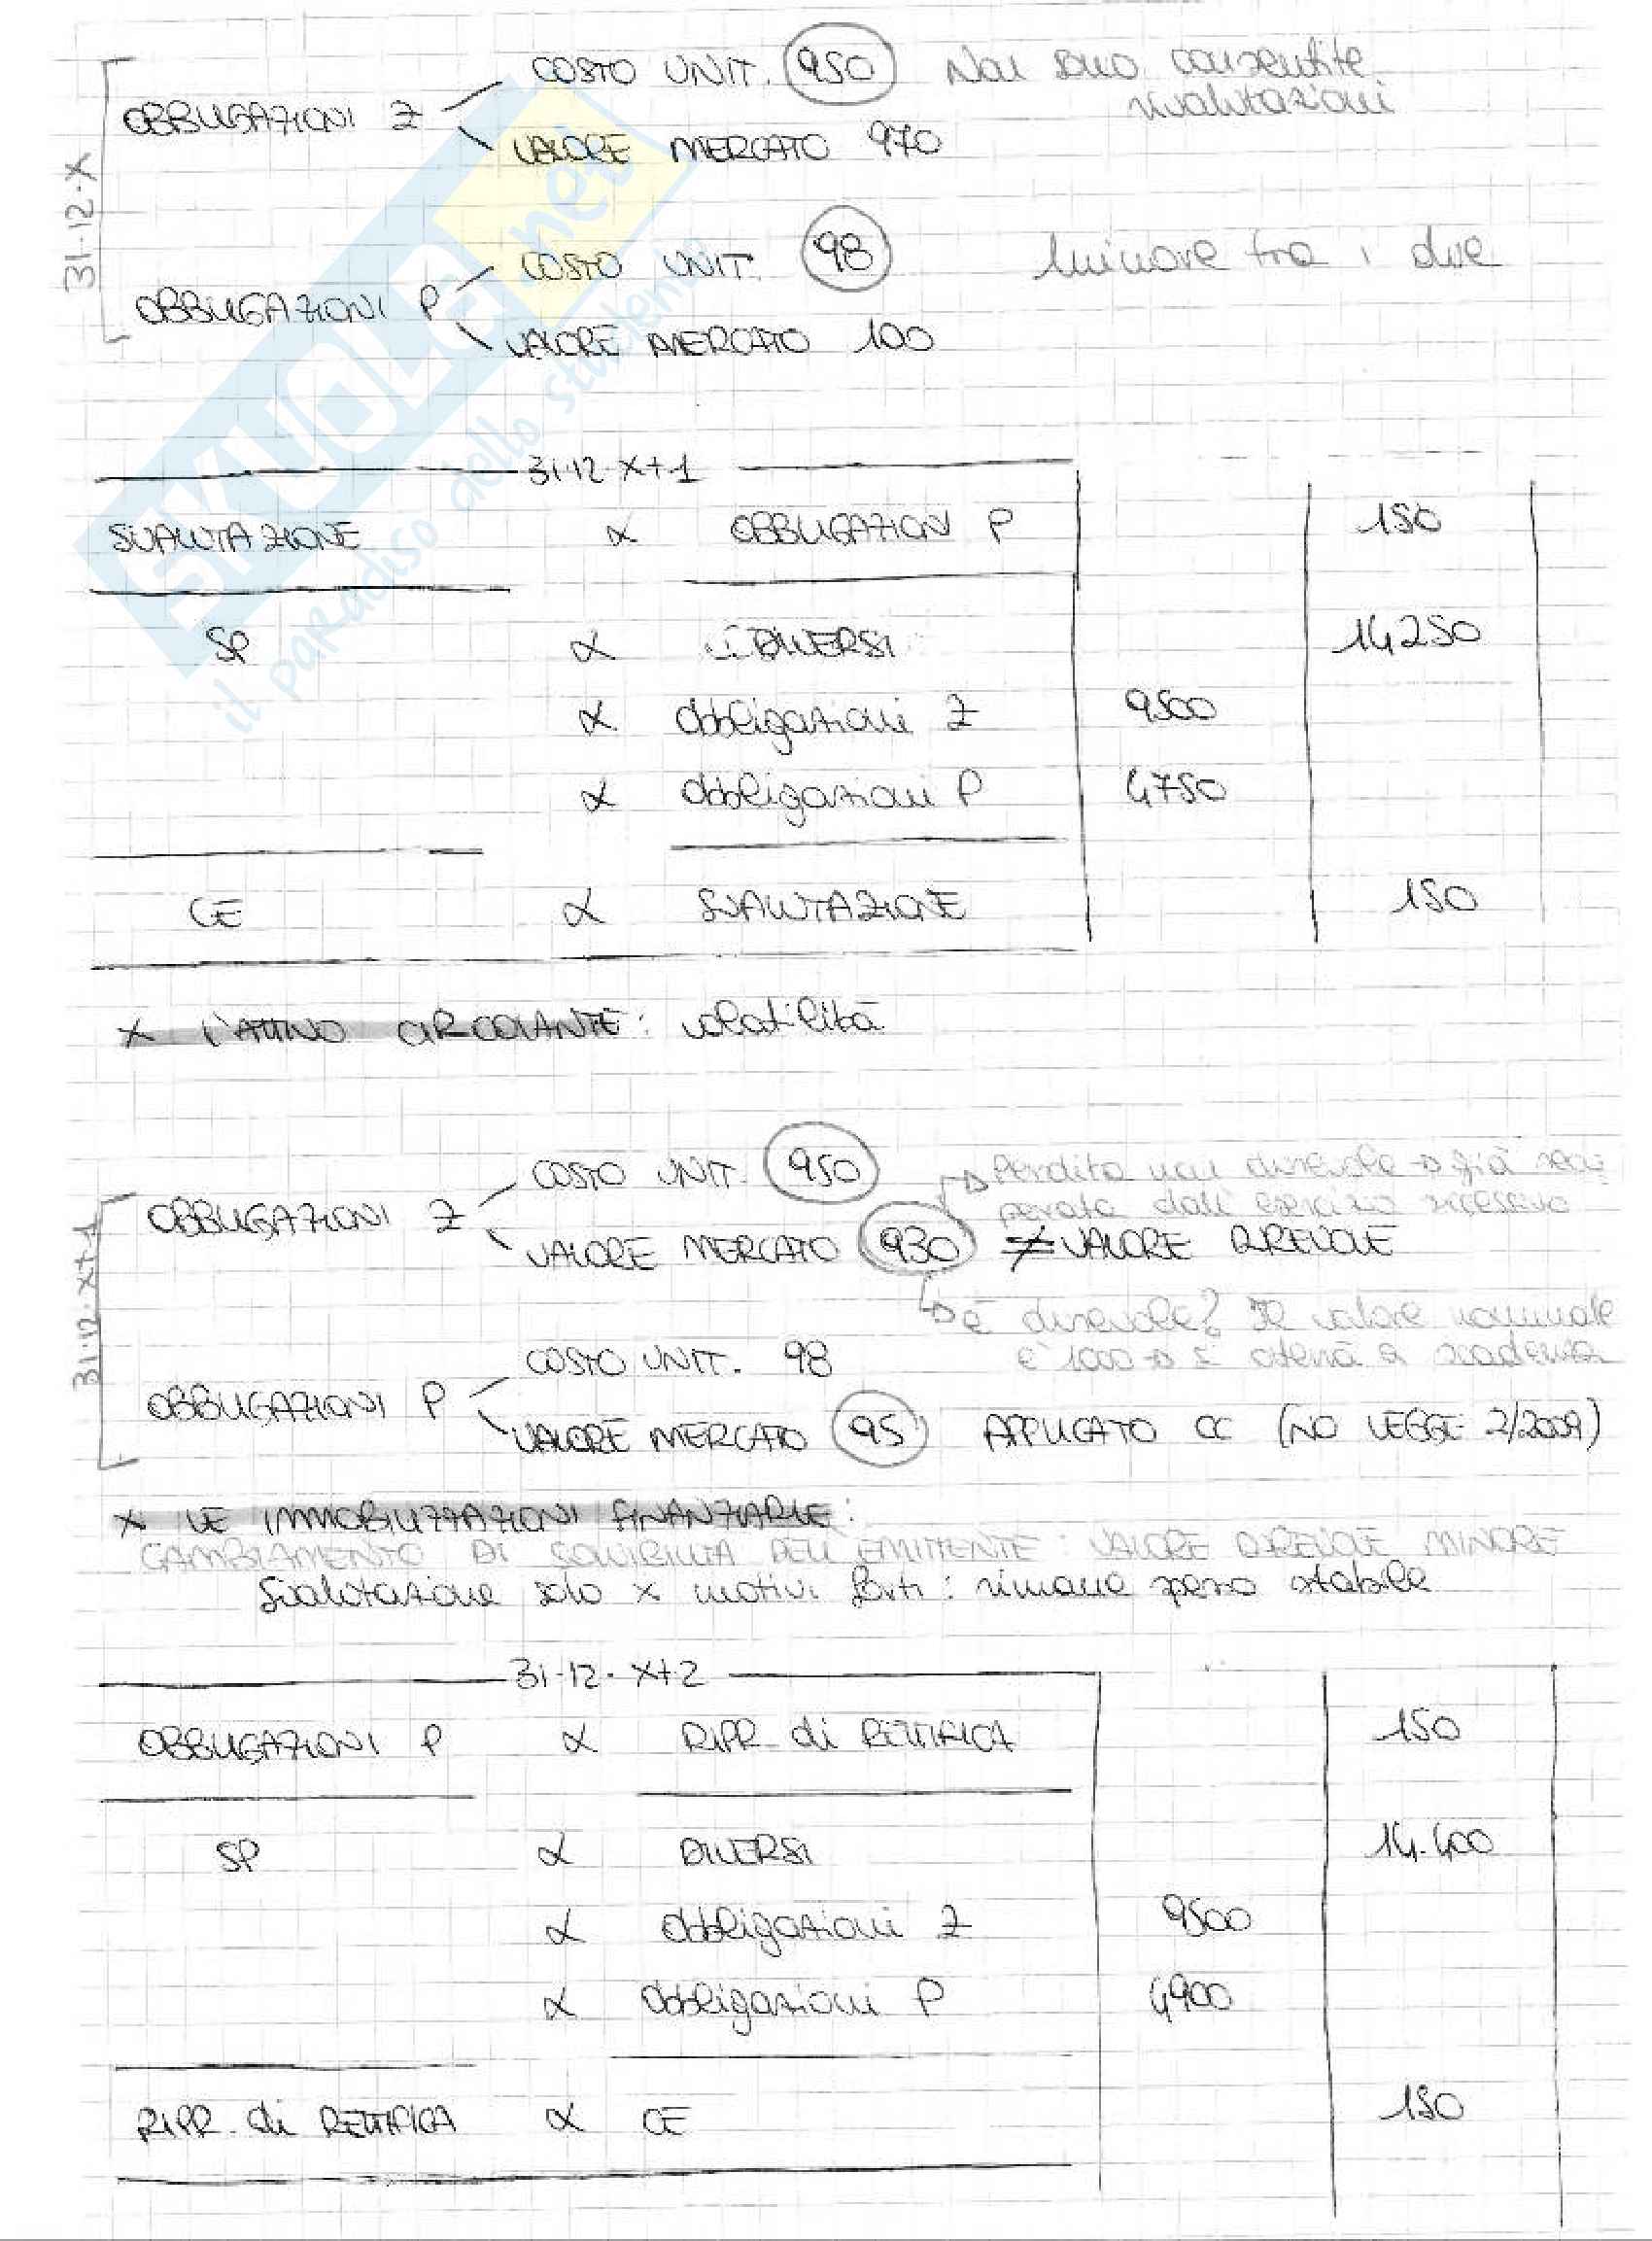 31·12·X
OBBLIGAZIONI Z
COSTO UNIT. 950 Non sono consentite
rivalutazioni
VALORE MERCATO 970
OBBLIGAZIONI P
COSTO UNIT. 98 Minore tra i due
VALORE MERCATO 100
31·12·X+1
SVALUTAZIONE a OBBLIGAZIONI P 150
SP a DIVERSI 14250
a Obbligazioni Z 9500
a Obbligazioni P 4750
CE a SVALUTAZIONE 150
X L'ATTIVO CIRCOLANTE: volatilità
31·12·X+1
OBBLIGAZIONI Z
COSTO UNIT. 950
Perdita non durevole → già recu
perata dall' esercizio successivo
VALORE MERCATO 930 ≠ VALORE DUREVOLE
è durevole? Il valore nominale
è 1000 → si otterrà a scadenza
OBBLIGAZIONI P
COSTO UNIT. 98
VALORE MERCATO 95 APPLICATO CC (NO LEGGE 2/2009)
X LE IMMOBILIZZAZIONI FINANZIARIE:
CAMBIAMENTO DI SOLVIBILITÀ DELL'EMITTENTE: VALORE DUREVOLE MINORE
Svalutazione solo x motivi forti: rimane spesso stabile
31·12·X+2
OBBLIGAZIONI P a RIPR. di RETTIFICA 150
SP a DIVERSI 14.400
a Obbligazioni Z 9500
a Obbligazioni P 4900
RIPR. di RETTIFICA a CE 150
SKUOLA.net
il paradiso dello studente